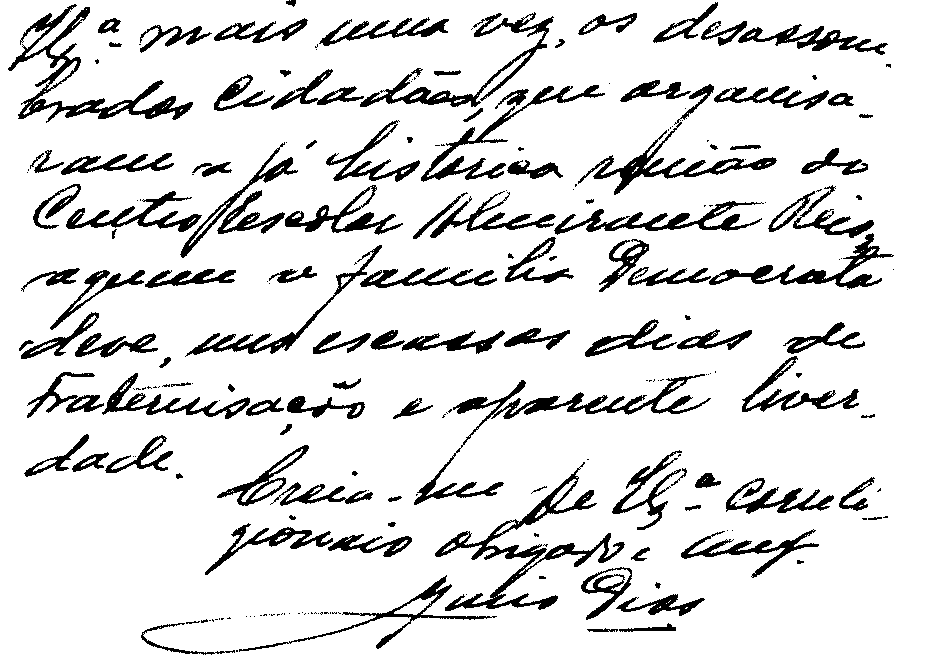 V.ª mais uma vez, os desassom-
brados Cidadãos, que organisa-
ram a já historica reunião do
Centro Escolar Almirante Reis,
a quem a familia Democrata
deve, uns escassos dias de
Fraternisação e aparente liver-
dade.
Creia-me De V.ª correli-
gionario obrigado e
Dias